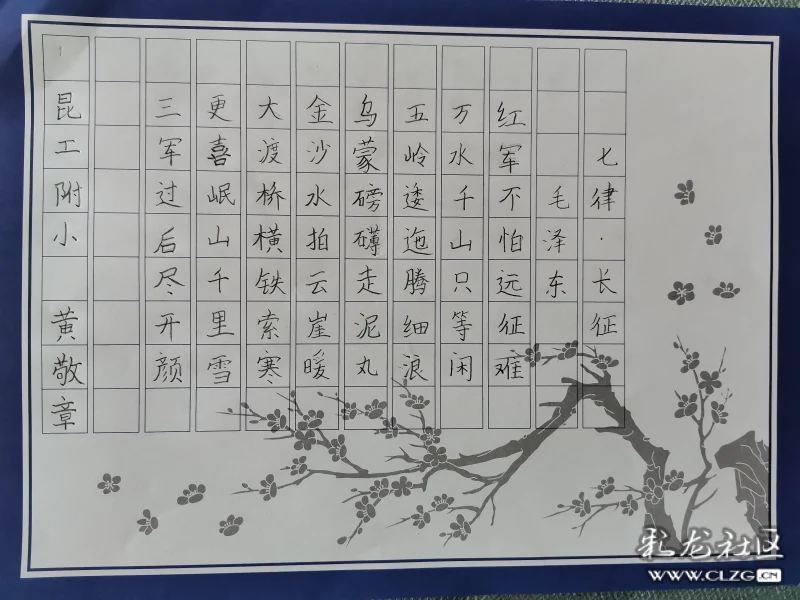 七律·长征
毛泽东
红军不怕远征难
万水千山只等闲
五岭逶迤腾细浪
乌蒙磅礴走泥丸
金沙水拍云崖暖
大渡桥横铁索寒
更喜岷山千里雪
三军过后尽开颜
昆工附小 黄敬章
彩龙社区
WWW.CLZG.CN